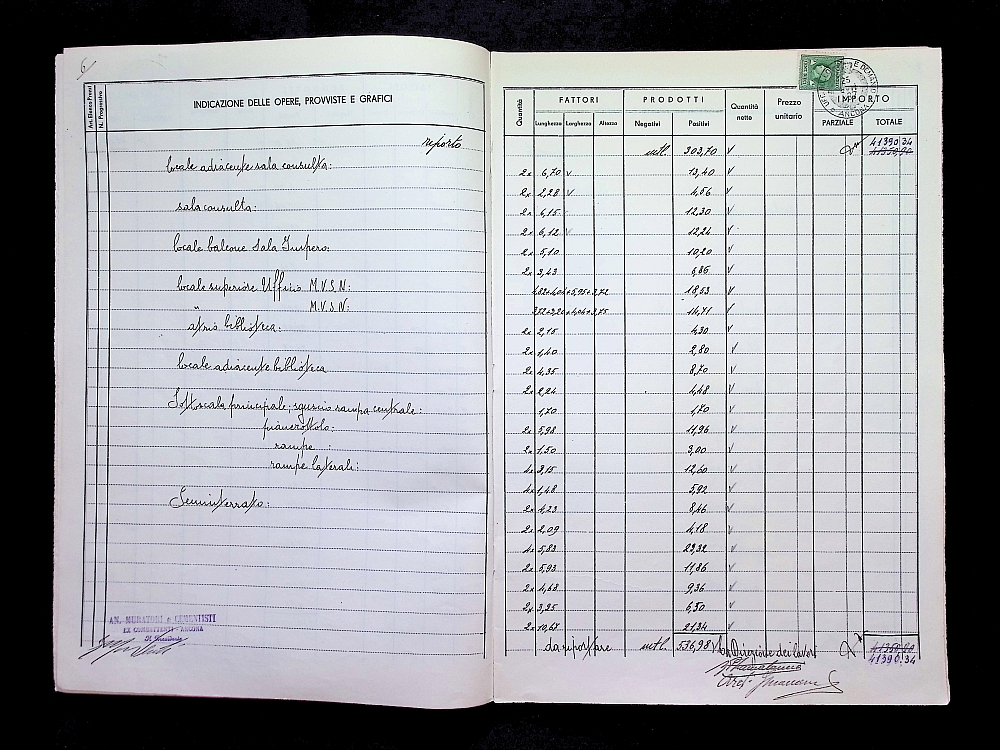 6
Art. Elenco Prezzi
N. Progressivo
INDICAZIONE DELLE OPERE, PROVVISTE E GRAFICI
riporto
locale adiacente sala consulta:
sala consulta:
locale balcone Sala Impero:
locale superiore Ufficio M.V.S.N:
" M.V.S.N:
atrio biblioteca:
locale adiacente biblioteca
Sottoscala principale; sguscio rampa centrale:
pianerottolo:
rampe :
rampe laterali:
Seminterrato:
AN. MURATORI e CEMENTISTI
EX COMBATTENTI - ANCONA
Il Presidente
Quantità
FATTORI
PRODOTTI
Quantità nette
Prezzo unitario
IMPORTO
Lunghezza Larghezza Altezza
Negativi Positivi
PARZIALE TOTALE
ANCONA
mtl. 303,70 41390,34
2x 6,70 13,40
2x 2,28 4,56
2x 6,15 12,30
2x 6,12 12,24
2x 5,10 10,20
2x 3,43 6,86
4,82+4,04+5,95+3,72 18,53
3,52+3,20+4,04+3,75 14,71
2x 2,15 4,30
2x 1,40 2,80
2x 4,35 8,70
2x 2,24 4,48
1,70 1,70
2x 5,98 11,96
2x 1,50 3,00
4x 3,15 12,60
4x 1,48 5,92
2x 4,23 8,46
2x 2,09 4,18
4x 5,83 23,32
2x 5,93 11,86
2x 4,68 9,36
2x 3,25 6,50
2x 10,67 21,34
da riportare mtl. 536,98 La Direzione dei lavori
41390,34